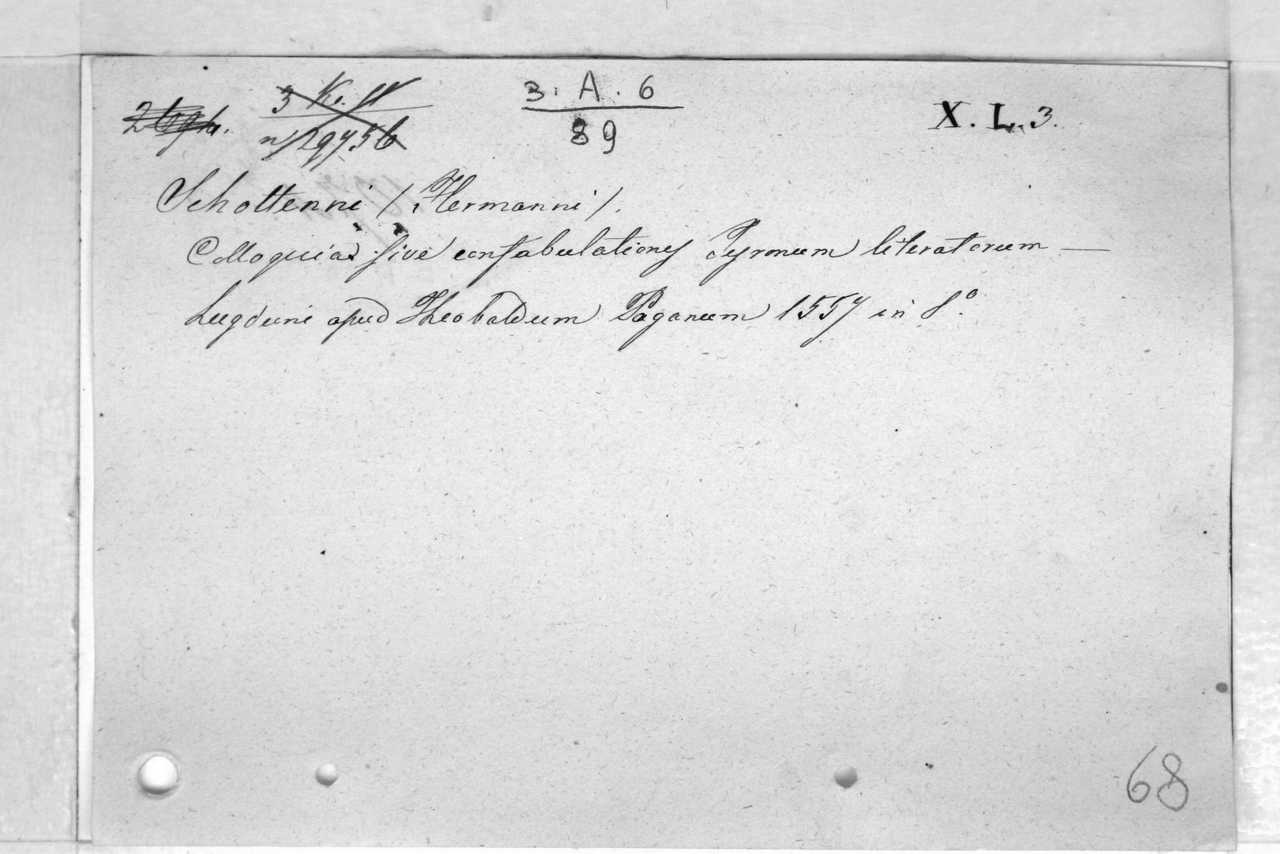 3. A. 6
89
X. L. 3.
Schottenni (Hermanni).
Colloquia sive confabulationes Tyronum literatorum —
Lugduni apud Theobaldum Paganum 1557 in 8º.
68